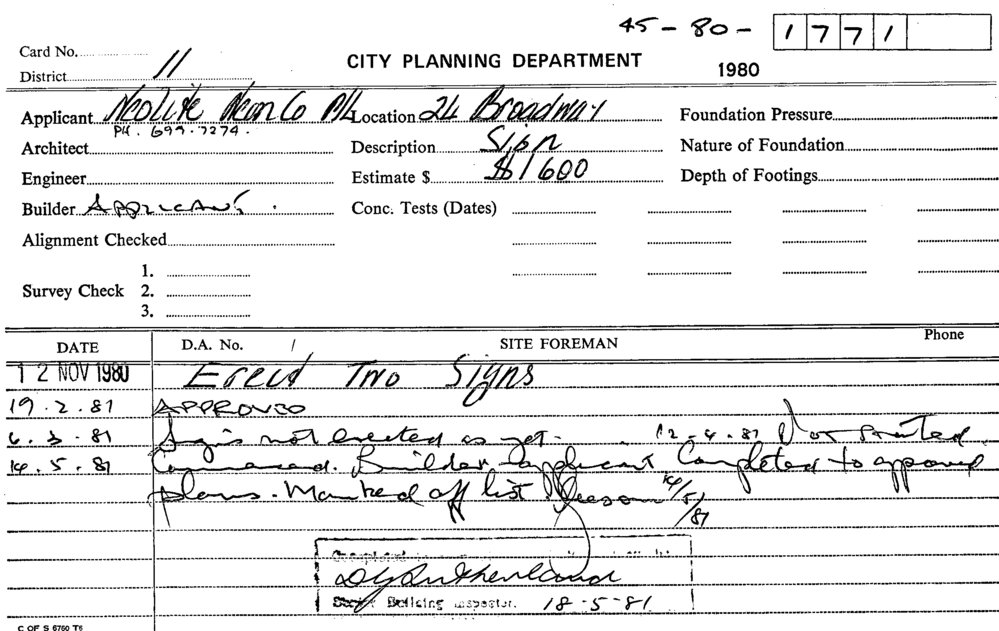 45-80- 1771
Card No.
CITY PLANNING DEPARTMENT 1980
District 11
Applicant Neolite Neon Co P/L Location 24 Broadway Foundation Pressure
PH. 699.7274.
Architect Description Sign Nature of Foundation
Engineer Estimate $ $1600 Depth of Footings
Builder APPLICANT. Conc. Tests (Dates)
Alignment Checked
1.
Survey Check 2.
3.
DATE D.A. No. / SITE FOREMAN Phone
12 NOV 1980 Erect Two Signs
19.2.81 APPROVED
6.3.81 Signs not erected as yet. 12.4.81 Not started
14.5.81 Commenced. Builder applicant Completed to approved
plans. Marked off list 14/5/81
Completed
DG Sutherland
Senior Building Inspector. 18-5-81
C OF S 6760 T6